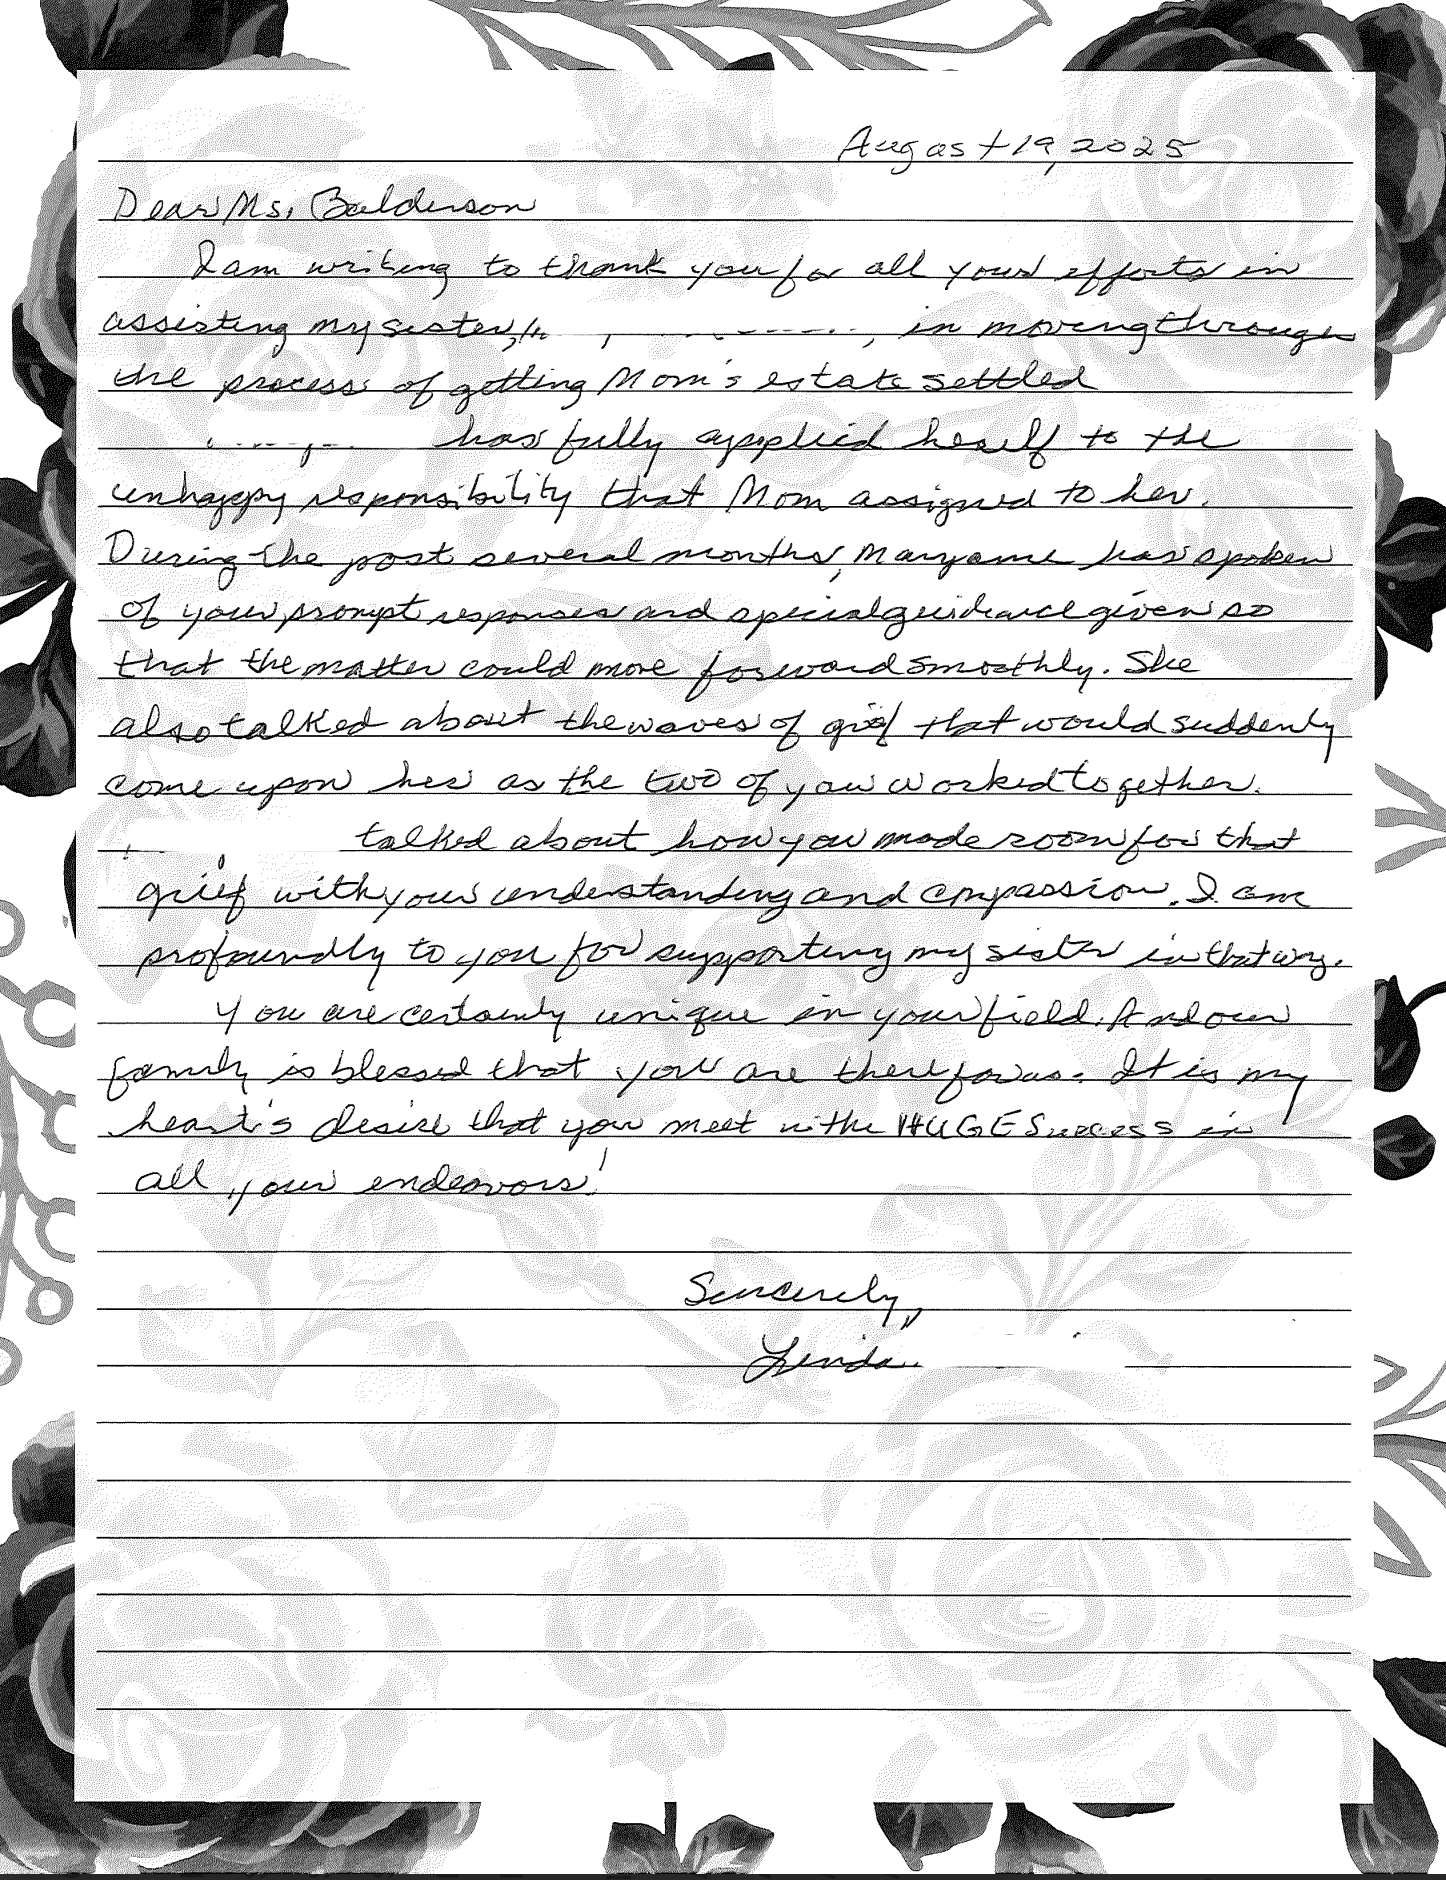 August 19, 2025
Dear Ms. Balderson
I am writing to thank you for all your efforts in
assisting my sister, , in moving through
the process of getting Mom's estate settled
has fully applied herself to the
unhappy responsibility that Mom assigned to her.
During the past several months, Maryanne has spoken
of your prompt responses and special guidance given so
that the matter could move forward smoothly. She
also talked about the waves of grief that would suddenly
come upon her as the two of you worked together.
talked about how you made room for that
grief with your understanding and compassion. I am
profoundly to you for supporting my sister in that way.
You are certainly unique in your field. And our
family is blessed that you are there for us. It is my
heart's desire that you meet with HUGE Success in
all your endeavors!
Sincerely,
Linda